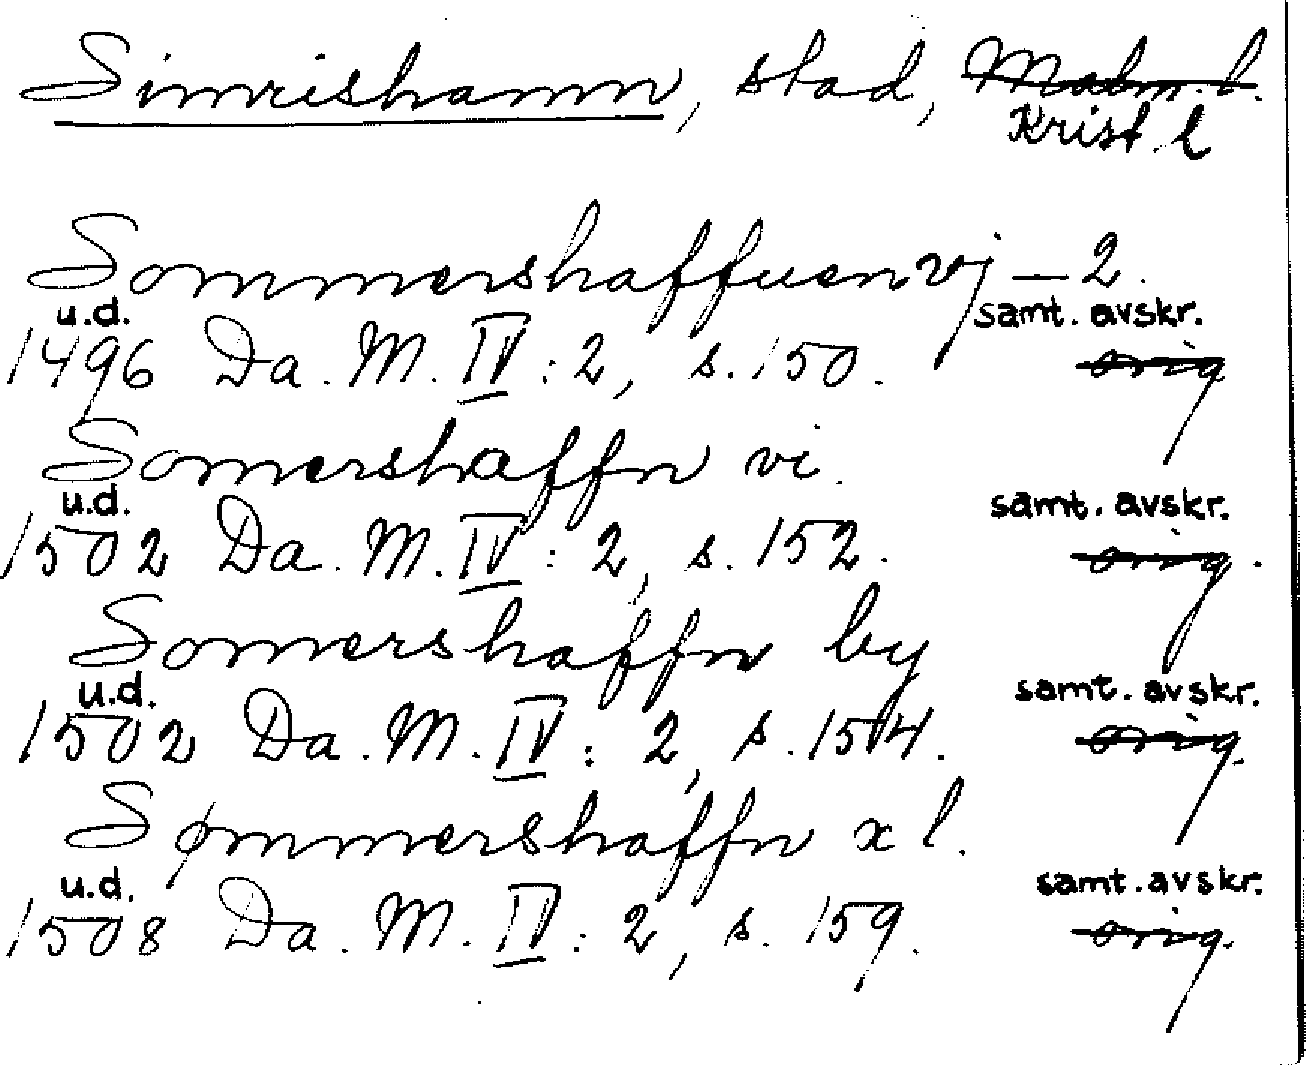 Simrishamn, stad, Malm. l.
Krist. l
Sommershaffuen vj – 2.
u.d. samt. avskr.
1496 Da. M. IV : 2, s. 150. orig
Somershaffn vi.
u.d. samt. avskr.
1502 Da. M. IV : 2, s. 152. orig.
Somershaffn by
u.d. samt. avskr.
1502 Da. M. IV : 2, s. 154. orig.
Sømmershaffn xl.
u.d. samt. avskr.
1508 Da. M. IV : 2, s. 159. orig.